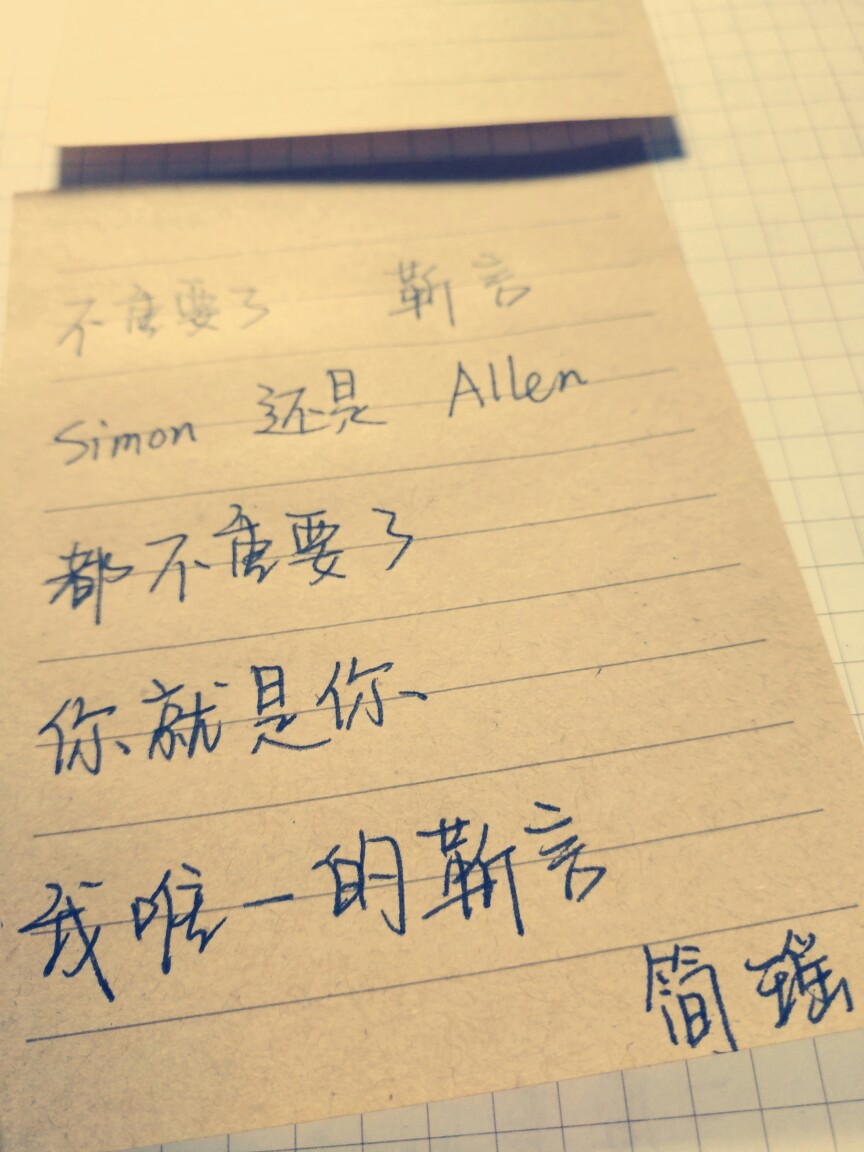 不重要了 靳言
Simon 还是 Allen
都不重要了
你就是你
我唯一的靳言
简瑶